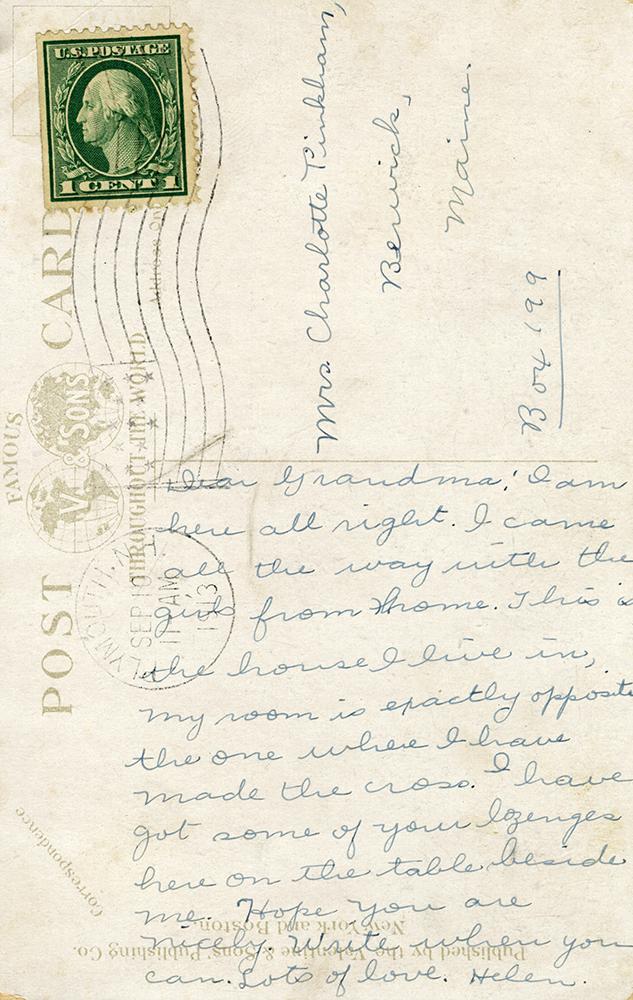 U.S. POSTAGE
1 CENT 1
FAMOUS
POST CARD
V. & SONS
THROUGHOUT THE WORLD
PLYMOUTH, N.
SEP 10
11 AM
1913
Mrs. Charlotte Pinkham,
Berwick,
Maine.
Box 199
Dear Grandma; I am
here all right. I came
all the way with the
girls from home. This is
the house I live in,
my room is exactly opposite
the one where I have
made the cross. I have
got some of your lozenges
here on the table beside
me. Hope you are
nicely. Write when you
can. Lots of love. Helen.
Correspondence
Published by the Valentine & Sons Publishing Co.
New York and Boston.